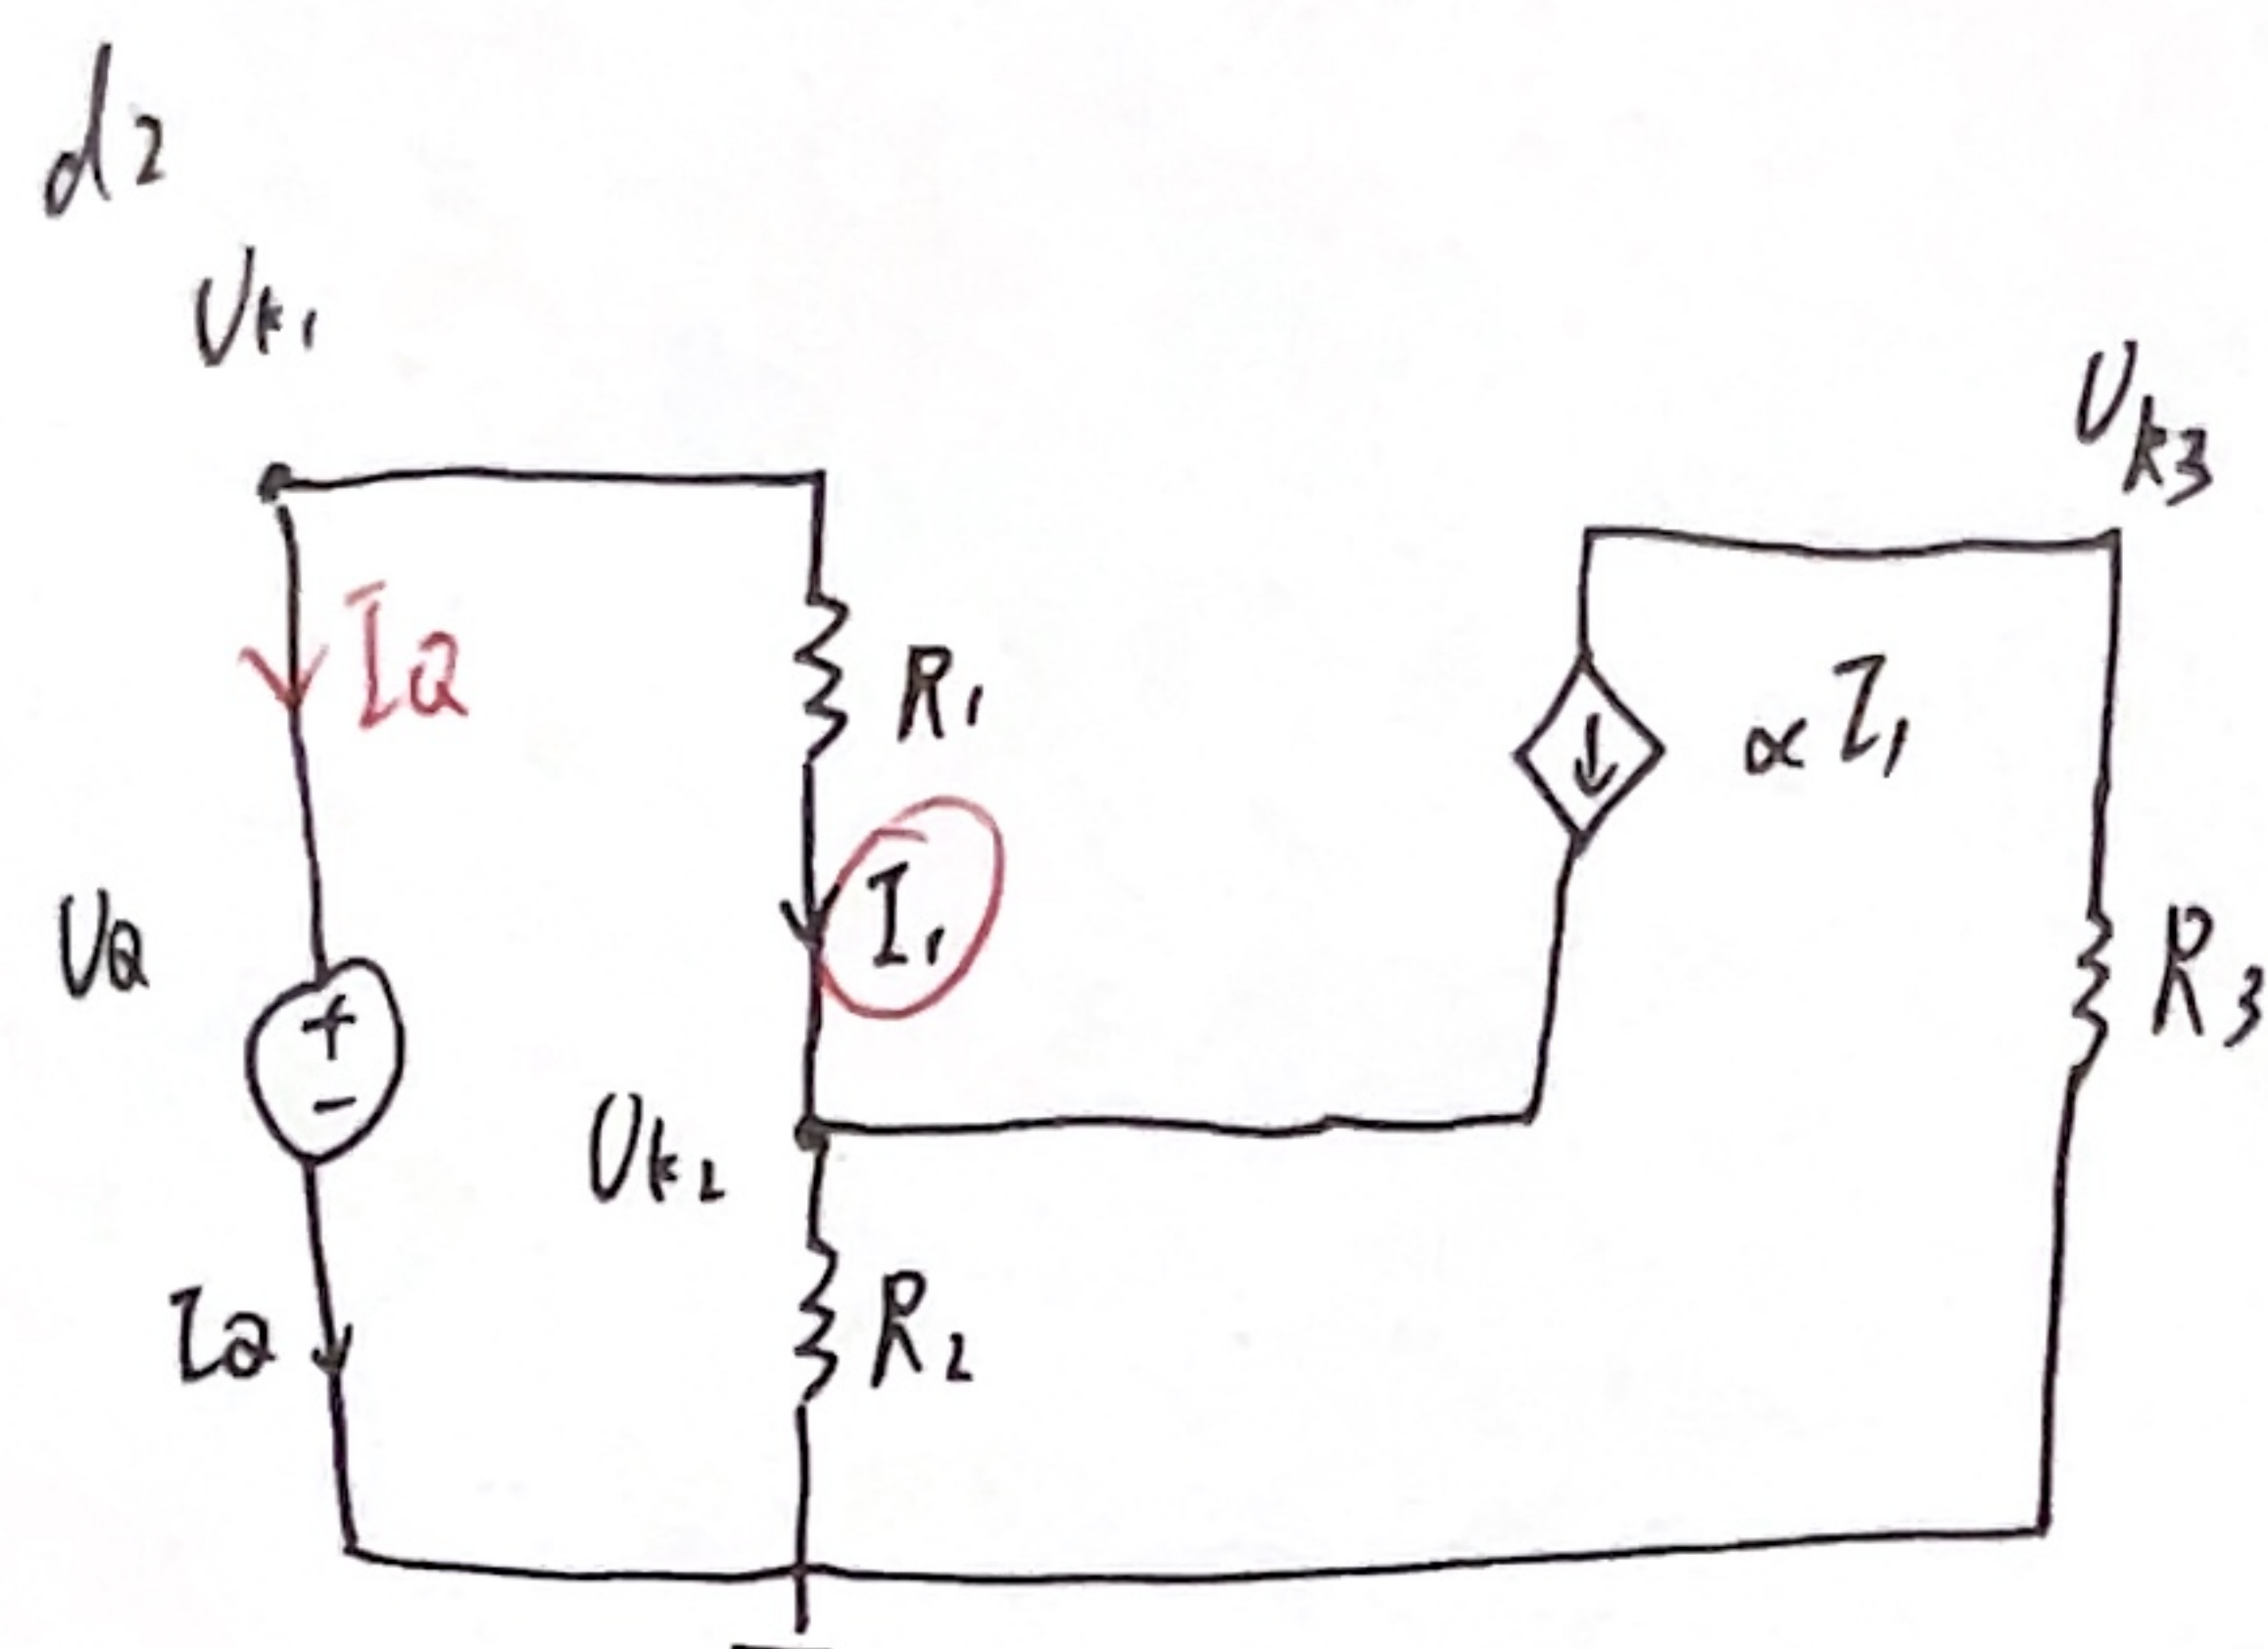 d2
Uk1
Uk3
IQ
R1
αI1
I1
UQ
+
-
R3
Uk2
IQ
R2